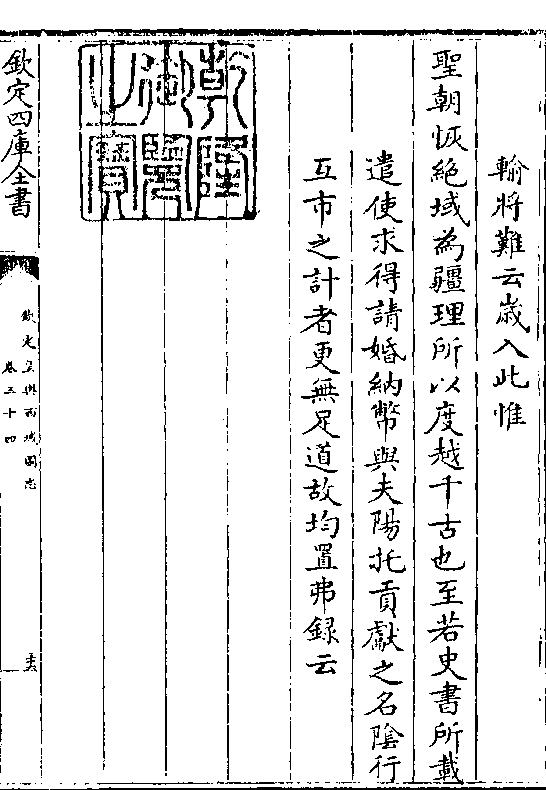 輸將難云歳入此惟
聖朝恢絶域為疆理所以度越千古也至若史書所載
遣使求得請婚納幣與夫陽托貢獻之名隂行
互市之計者更無足道故均置弗録云
乾隆御覽之寶
欽定四庫全書
欽定皇輿西域圖志
卷三十四